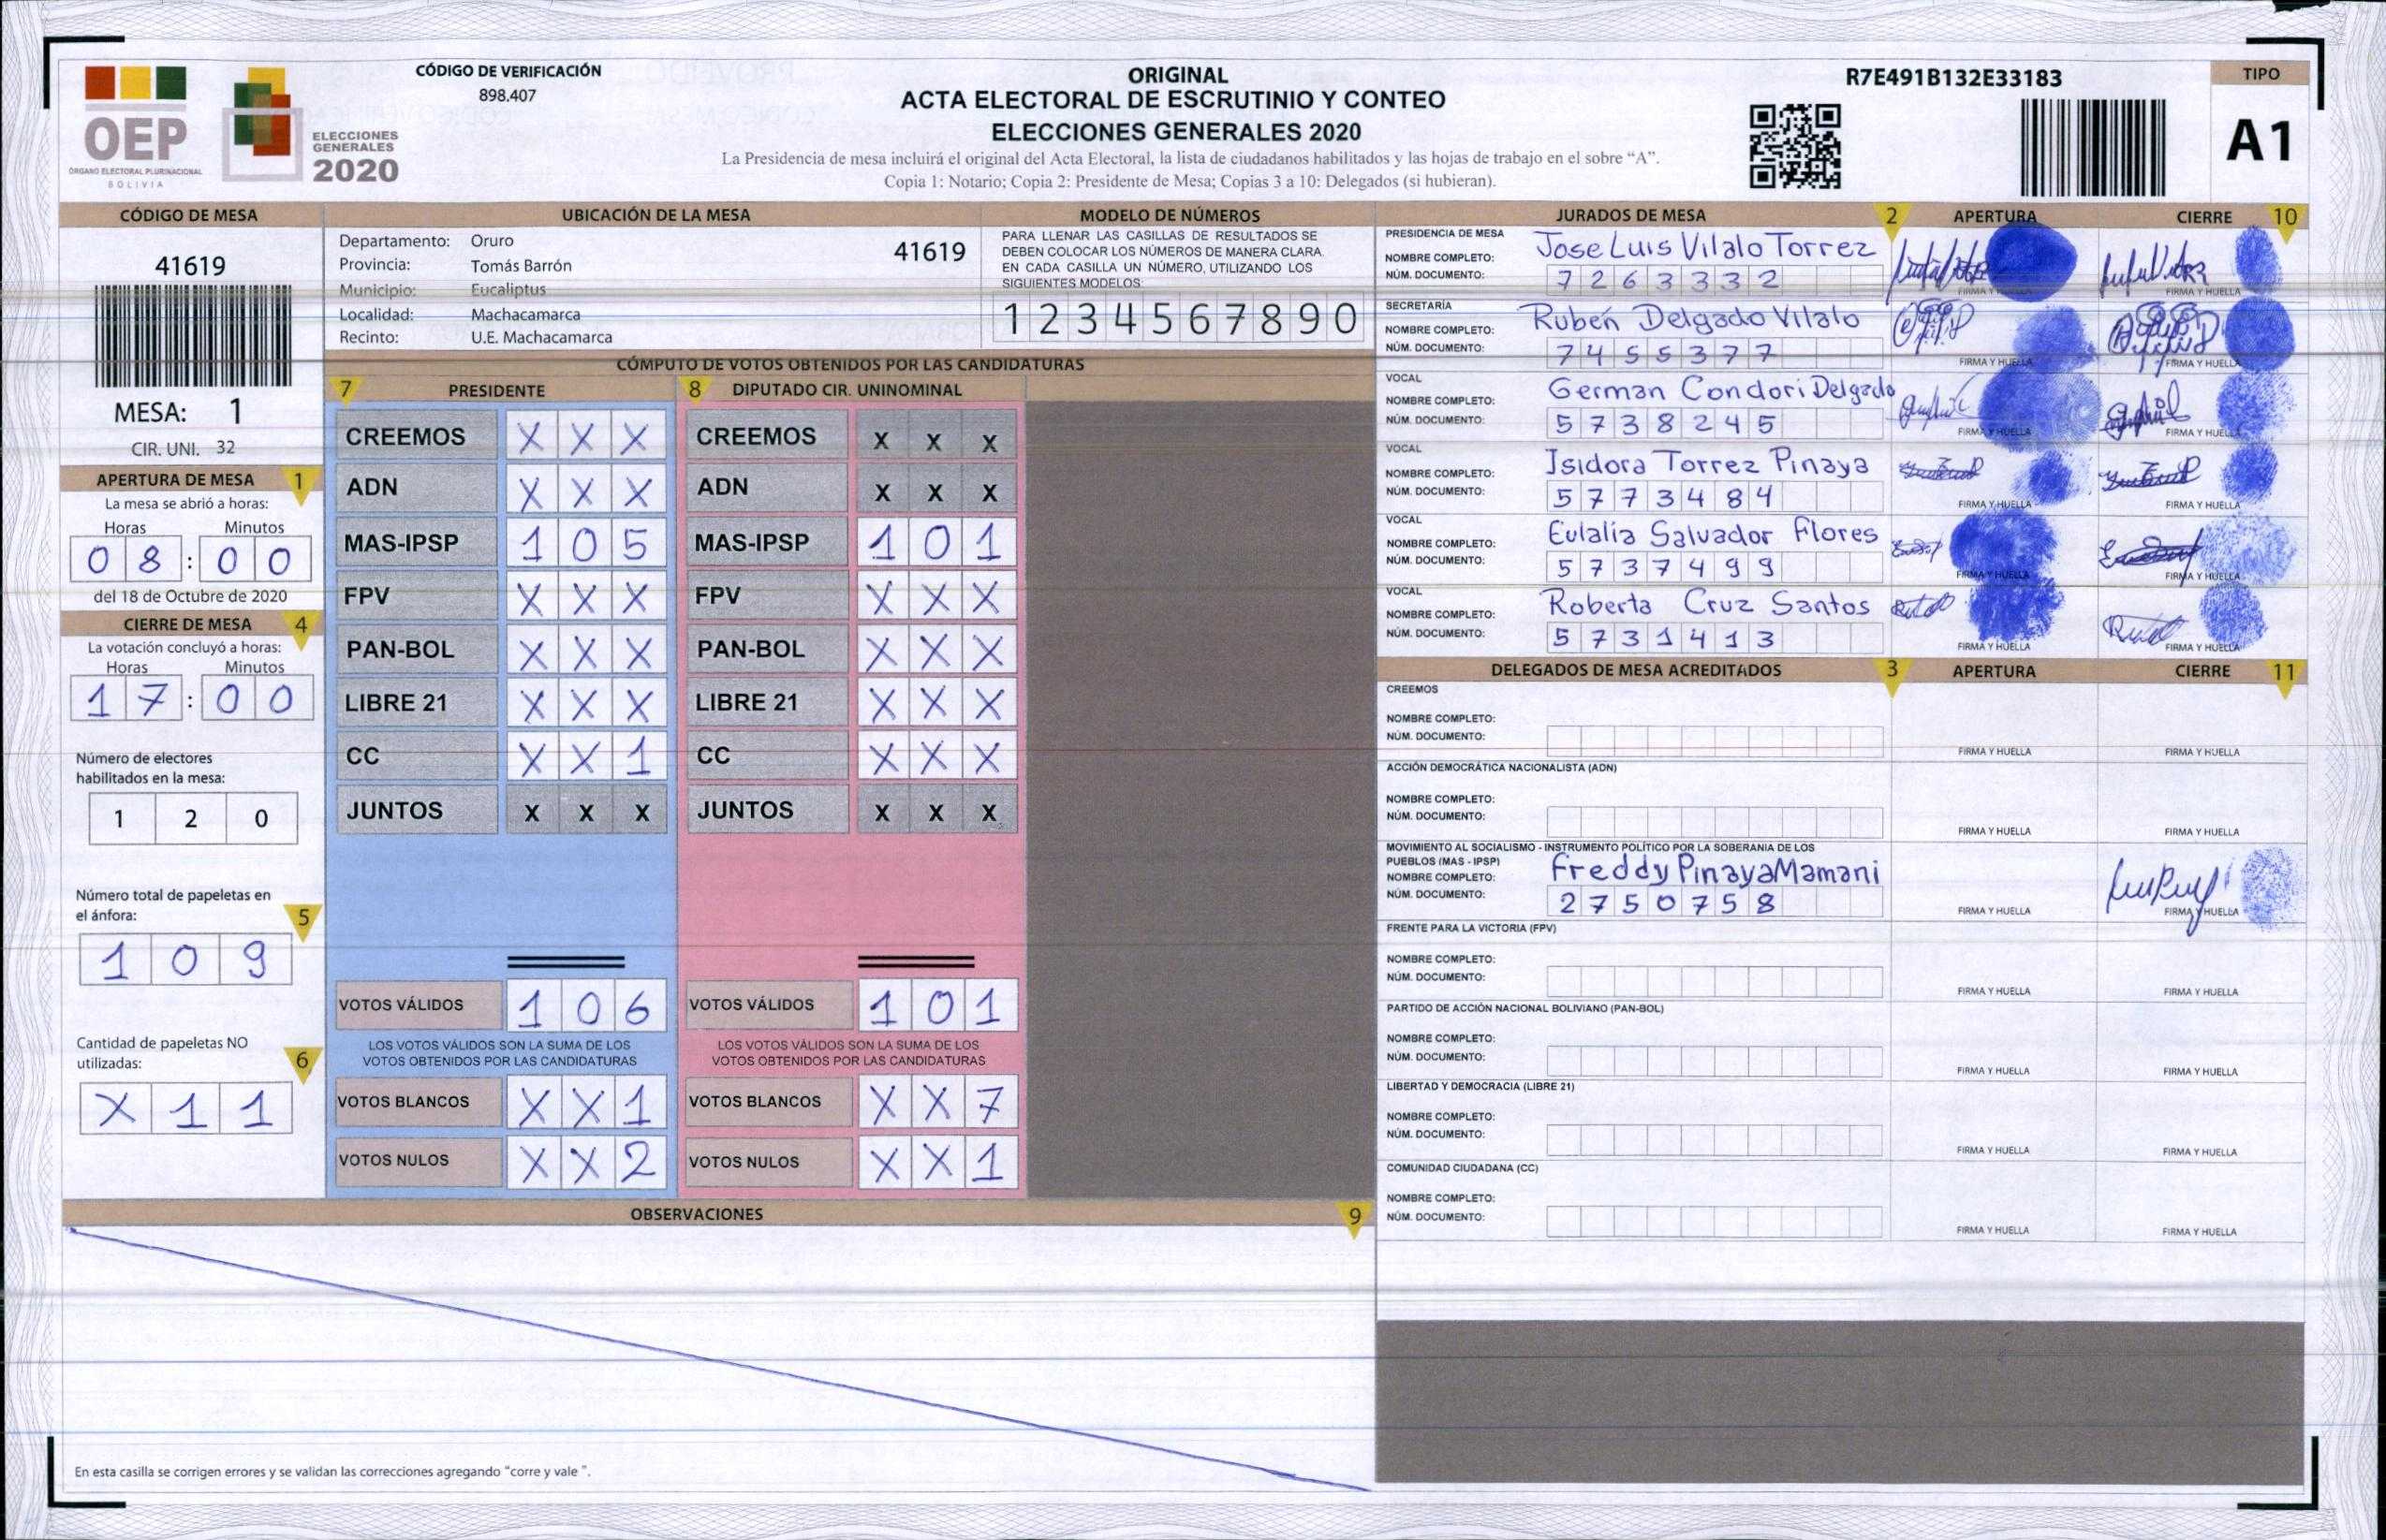 OEP
ÓRGANO ELECTORAL PLURINACIONAL
BOLIVIA
ELECCIONES
GENERALES
2020
CÓDIGO DE VERIFICACIÓN
898.407
ORIGINAL
ACTA ELECTORAL DE ESCRUTINIO Y CONTEO
ELECCIONES GENERALES 2020
La Presidencia de mesa incluirá el original del Acta Electoral, la lista de ciudadanos habilitados y las hojas de trabajo en el sobre “A”.
Copia 1: Notario; Copia 2: Presidente de Mesa; Copias 3 a 10: Delegados (si hubieran).
R7E491B132E33183
TIPO
A1
CÓDIGO DE MESA
41619
MESA: 1
CIR. UNI. 32
UBICACIÓN DE LA MESA
Departamento: Oruro
41619
Provincia: Tomás Barrón
Municipio: Eucaliptus
Localidad: Machacamarca
Recinto: U.E. Machacamarca
MODELO DE NÚMEROS
PARA LLENAR LAS CASILLAS DE RESULTADOS SE
DEBEN COLOCAR LOS NÚMEROS DE MANERA CLARA.
EN CADA CASILLA UN NÚMERO, UTILIZANDO LOS
SIGUIENTES MODELOS:
1 2 3 4 5 6 7 8 9 0
APERTURA DE MESA 1
La mesa se abrió a horas:
Horas Minutos
0 8 : 0 0
del 18 de Octubre de 2020
CIERRE DE MESA 4
La votación concluyó a horas:
Horas Minutos
1 7 : 0 0
Número de electores
habilitados en la mesa:
1 2 0
Número total de papeletas en
el ánfora: 5
1 0 9
Cantidad de papeletas NO
utilizadas: 6
X 1 1
CÓMPUTO DE VOTOS OBTENIDOS POR LAS CANDIDATURAS
7 PRESIDENTE
CREEMOS X X X
ADN X X X
MAS-IPSP 1 0 5
FPV X X X
PAN-BOL X X X
LIBRE 21 X X X
CC X X 1
JUNTOS X X X
VOTOS VÁLIDOS 1 0 6
LOS VOTOS VÁLIDOS SON LA SUMA DE LOS
VOTOS OBTENIDOS POR LAS CANDIDATURAS
VOTOS BLANCOS X X 1
VOTOS NULOS X X 2
8 DIPUTADO CIR. UNINOMINAL
CREEMOS X X X
ADN X X X
MAS-IPSP 1 0 1
FPV X X X
PAN-BOL X X X
LIBRE 21 X X X
CC X X X
JUNTOS X X X
VOTOS VÁLIDOS 1 0 1
LOS VOTOS VÁLIDOS SON LA SUMA DE LOS
VOTOS OBTENIDOS POR LAS CANDIDATURAS
VOTOS BLANCOS X X 7
VOTOS NULOS X X 1
OBSERVACIONES 9
En esta casilla se corrigen errores y se validan las correcciones agregando “corre y vale ”.
JURADOS DE MESA 2 APERTURA CIERRE 10
PRESIDENCIA DE MESA
NOMBRE COMPLETO: Jose Luis Vilalo Torrez
NÚM. DOCUMENTO: 7 2 6 3 3 3 2
FIRMA Y HUELLA FIRMA Y HUELLA
SECRETARÍA
NOMBRE COMPLETO: Rubén Delgado Vilalo
NÚM. DOCUMENTO: 7 4 5 5 3 7 7
FIRMA Y HUELLA FIRMA Y HUELLA
VOCAL
NOMBRE COMPLETO: German Condori Delgado
NÚM. DOCUMENTO: 5 7 3 8 2 4 5
FIRMA Y HUELLA FIRMA Y HUELLA
VOCAL
NOMBRE COMPLETO: Isidora Torrez Pinaya
NÚM. DOCUMENTO: 5 7 7 3 4 8 4
FIRMA Y HUELLA FIRMA Y HUELLA
VOCAL
NOMBRE COMPLETO: Eulalia Salvador Flores
NÚM. DOCUMENTO: 5 7 3 7 4 9 9
FIRMA Y HUELLA FIRMA Y HUELLA
VOCAL
NOMBRE COMPLETO: Roberta Cruz Santos
NÚM. DOCUMENTO: 5 7 3 1 4 1 3
FIRMA Y HUELLA FIRMA Y HUELLA
DELEGADOS DE MESA ACREDITADOS 3 APERTURA CIERRE 11
CREEMOS
NOMBRE COMPLETO:
NÚM. DOCUMENTO:
FIRMA Y HUELLA FIRMA Y HUELLA
ACCIÓN DEMOCRÁTICA NACIONALISTA (ADN)
NOMBRE COMPLETO:
NÚM. DOCUMENTO:
FIRMA Y HUELLA FIRMA Y HUELLA
MOVIMIENTO AL SOCIALISMO - INSTRUMENTO POLÍTICO POR LA SOBERANIA DE LOS
PUEBLOS (MAS - IPSP)
NOMBRE COMPLETO: Freddy Pinaya Mamani
NÚM. DOCUMENTO: 2 7 5 0 7 5 8
FIRMA Y HUELLA FIRMA Y HUELLA
FRENTE PARA LA VICTORIA (FPV)
NOMBRE COMPLETO:
NÚM. DOCUMENTO:
FIRMA Y HUELLA FIRMA Y HUELLA
PARTIDO DE ACCIÓN NACIONAL BOLIVIANO (PAN-BOL)
NOMBRE COMPLETO:
NÚM. DOCUMENTO:
FIRMA Y HUELLA FIRMA Y HUELLA
LIBERTAD Y DEMOCRACIA (LIBRE 21)
NOMBRE COMPLETO:
NÚM. DOCUMENTO:
FIRMA Y HUELLA FIRMA Y HUELLA
COMUNIDAD CIUDADANA (CC)
NOMBRE COMPLETO:
NÚM. DOCUMENTO:
FIRMA Y HUELLA FIRMA Y HUELLA